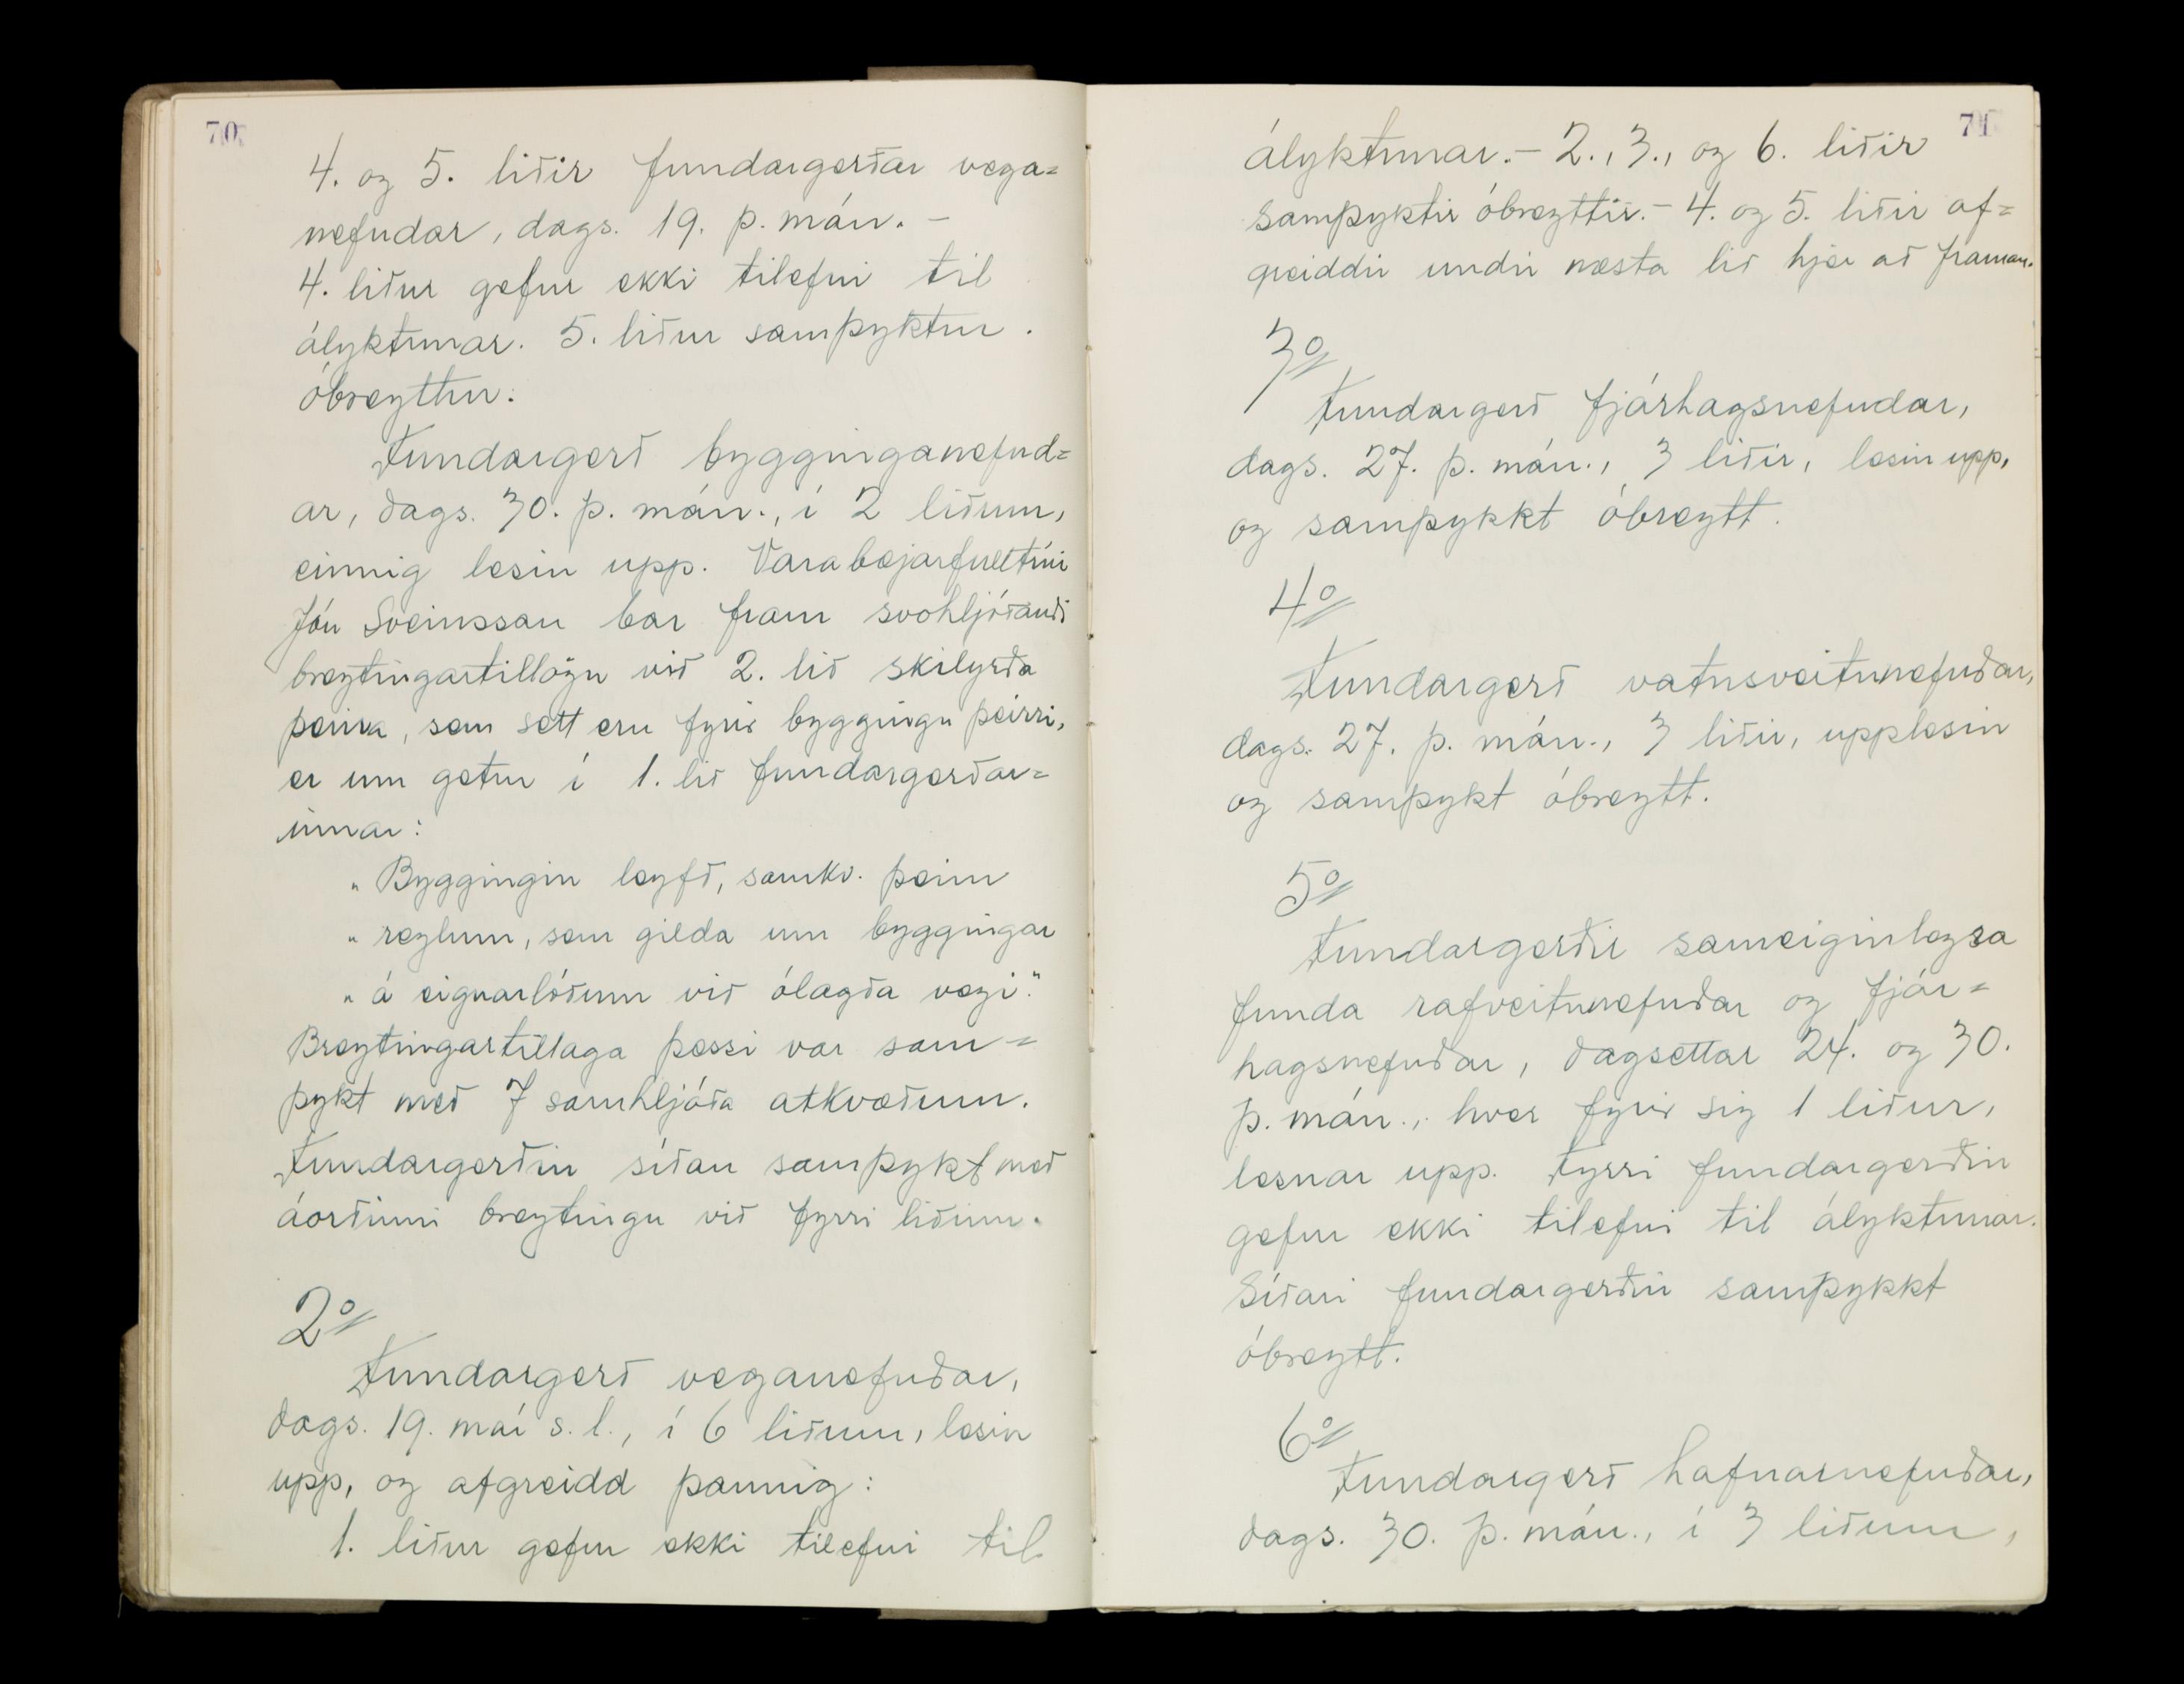 70
4. og 5. liðir fundargerðar vega=
nefndar, dags. 19. þ. mán. –
4. liður gefur ekki tilefni til
ályktunar. 5. liður samþyktur.
óbreyttur.
Fundargerð bygginganefnd=
ar, dags. 30. þ. mán., í 2 liðum,
einnig lesin upp. Varabæjarfulltrúi
Jón Sveinsson bar fram svohljóðandi
breytingartillögu við 2. lið skilyrða
þeirra, sem sett eru fyrir byggingu þeirri,
er um getur í 1. lið fundargerðar=
innar:
„Byggingin leyfð, samkv. þeim
„reglum, sem gilda um byggingar
„á eignarlóðum við ólagða vegi."
Breytingartillaga þessi var sam=
þykt með 7 samhljóða atkvæðum.
Fundargerðin síðan samþykt með
áorðinni breytingu við fyrri liðinn.
2º
Fundargerð veganefndar,
dags. 19. maí s.l., í 6 liðum, lesin
upp, og afgreidd þannig:
1. liður gefur ekki tilefni til
71
ályktunar. – 2., 3., og 6. liðir
samþyktir óbreyttir. – 4. og 5. liðir af=
greiddir undir næsta lið hjer að framan.
3º
Fundargerð fjárhagsnefndar,
dags. 27. þ. mán., 3 liðir, lesin upp,
og samþykkt óbreytt.
4º
Fundargerð vatnsveitunefndar,
dags. 27. þ. mán., 3 liðir, upplesin
og samþykt óbreytt.
5º
Fundargerðir sameiginlegra
funda rafveitunefndar og fjár=
hagsnefndar, dagsettar 24. og 30.
þ. mán., hver fyrir sig 1 liður,
lesnar upp. Fyrri fundargerðin
gefur ekki tilefni til ályktunar.
Síðari fundargerðin samþykkt
óbreytt.
6º
Fundargerð hafnarnefndar,
dags. 30. þ. mán., í 3 liðum,